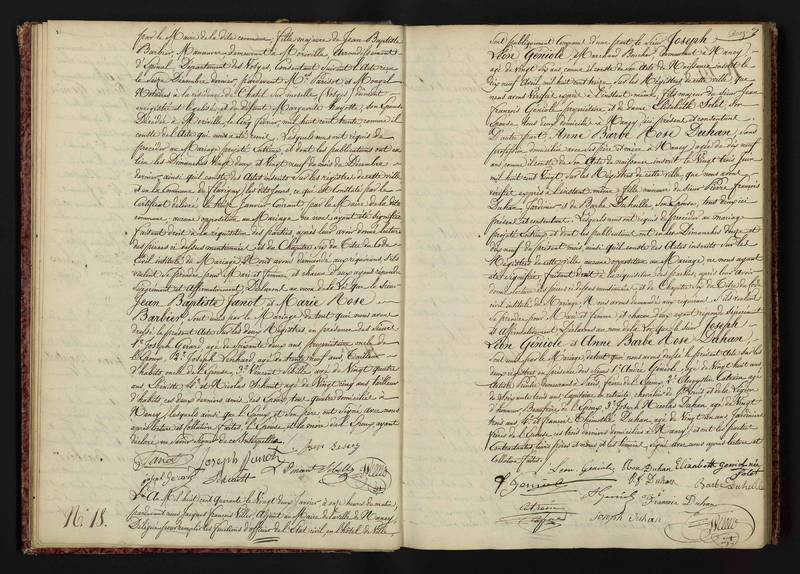 par le Maire de la dite commune, fille majeure de Jean Baptiste
Barbier, Manœuvre demeurant à Moriville, Arrondissement
d'Epinal, Département des Vosges, Consentant suivant acte reçu
le Seize Décembre dernier, pardevant
Notaires à la résidence de Chatel sur Moselle (Vosges) dûment
enregistré et légalisé, et de défunte Marguerite son Epouse,
Décédée à Moriville, le cinq février mil huit cent trente, comme il
conste de l'acte qui nous a été remis, Lesquels nous ont requis de
procéder au Mariage projeté entr'eux, et dont les publications ont eu
lieu les Dimanches Vingt deux et Vingt neuf du mois de Décembre
dernier, ainsi qu'il conste des Actes inscrits sur les registres de cette ville
et en la Commune de les dits Jours, ce qui est constaté par le
Certificat délivré le Janvier Courant, par le Maire de la dite
commune, aucune opposition au Mariage ne nous ayant été signifiée
faisant droit à la réquisition des parties, après leur avoir donné lecture
des pièces ci dessus mentionnées et du Chapitre Six du Titre du Code
Civil intitulé du Mariage, Nous avons demandé aux requérans s'ils
veulent se prendre pour Mari et femme, et chacun d'eux ayant répondu
séparément et affirmativement, Déclarons au nom de la loi que le Sieur
Jean Baptiste Janot et Marie Rose
Barbier Sont unis par le Mariage, de tout quoi nous avons
dressé le présent Acte sur les deux Registres en présence des Sieurs
1° Joseph Gérard, âgé de soixante deux ans, propriétaire oncle de
l'Epoux 2° Joseph Lienhard, âgé de trente neuf ans, Tailleur
d'habits oncle de l'Epouse, 3° Vincent Schiller, âgé de Vingt quatre
ans, et 4° Nicolas Schmit, âgé de Vingt cinq ans tailleur
d'habits, ces deux derniers amis des Epoux, tous quatre domiciliés à
Nancy, lesquels ainsi que l'Epoux, et son père ont signé avec nous
après lecture et Collation faites, l'Epouse, et la mère de l'Epoux ayant
déclaré ne savoir signer de ce interpellées.
Janot Joseph Janot
joseph Gerard Vincent Schiller
N° 18.
L'An Mil huit cent quarante le Vingt deux Janvier à onze heures du matin,
pardevant nous Jacques François Adjoint au Maire de la Ville de Nancy,
Délégué pour remplir les fonctions d'officier de l'Etat civil, en l'hôtel de Ville,
Sont publiquement Comparus d'une part, le Sieur Joseph
Léon Géniole, Marchand Mercier demeurant à Nancy,
âgé de Vingt six ans comme il conste de son Acte de Naissance inscrit le
dix neuf Avril mil huit cent treize, sur les Registres de cette ville, que
nous avons Vérifié exprès à l'instant même, fils majeur du Sieur Jean
François Géniole propriétaire et de Dame Elisabeth Jolet, Son
Epouse, tous deux domiciliés à Nancy, ici présents et consentans.
D'autre part Anne Barbe Rose Duhan, sans
profession domiciliée avec ses père et mère à Nancy, âgée de dix neuf
ans, comme il conste de son Acte de naissance inscrit le Vingt trois Juin
mil huit cent Vingt, sur les Registres de cette ville, que nous avons
vérifié exprès à l'instant même, fille mineure du Sieur Pierre François
Duhan, Jardinier et de Barbe son Epouse, tous deux ici
présens et consentans. Lesquels nous ont requis de procéder au mariage
projeté entr'eux et dont les publications ont eu lieu les Dimanches Douze et
dix neuf du présent mois, ainsi qu'il conste des Actes inscrits sur les
Registres de cette ville, aucune opposition au Mariage ne nous ayant
été signifiée, faisant droit à la réquisition des parties, après leur avoir
donné lecture des pièces ci dessus mentionnées, et du Chapitre Six du Titre du Code
Civil intitulé du Mariage, Nous avons demandé aux requérans s'ils veulent
se prendre pour Mari et femme, et chacun d'eux ayant répondu séparément
et affirmativement, Déclarons au nom de la Loi, que le Sieur Joseph
Léon Géniole et Anne Barbe Rose Duhan,
Sont unis par le Mariage, de tout quoi nous avons dressé le présent Acte sur les
deux registres en présence des Sieurs 1° Aimé Géniole, âgé de Vingt huit ans,
Artiste Peintre demeurant à Paris, frère de l'Epoux, 2° âgé
de Soixante trois ans, Capitaine en retraite, chevalier de St Louis et de la Légion
d'honneur, Beaufrère de l'Epoux, 3° Joseph Nicolas Duhan, âgé de Vingt
trois ans, 4° et François Théophile Duhan, âgé de Vingt un ans, Jardiniers
frères de l'Epouse, ces trois derniers domiciliés à Nancy, et ont les parties
Contractantes, leurs pères et mères, et les témoins, signé avec nous après lecture et
Collation faites.
Leon Geniole Rose Duhan Elizabeth geniole née
Jolet
Geniole P. F. Duhan Barbe
Geniole François Duhan
Joseph Duhan